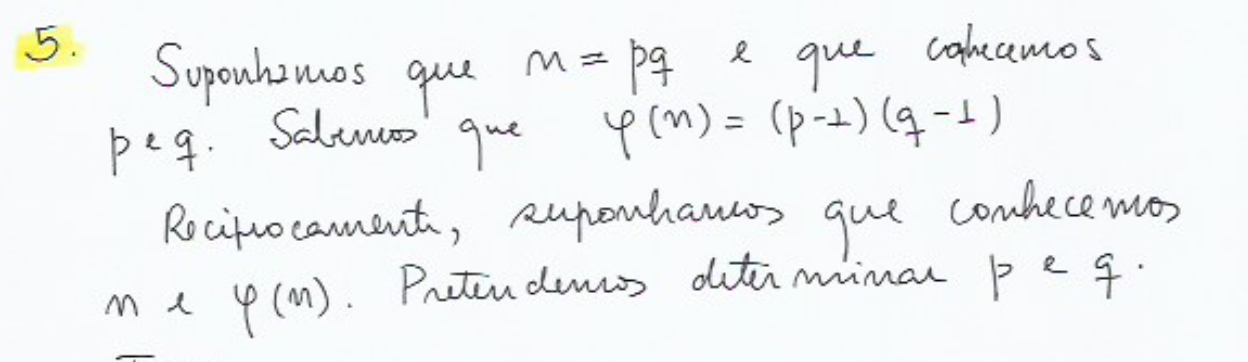 5. Suponhamos que n = pq e que conhecemos
p e q. Sabemos que φ(n) = (p-1)(q-1)
Reciprocamente, suponhamos que conhecemos
n e φ(n). Pretendemos determinar p e q.